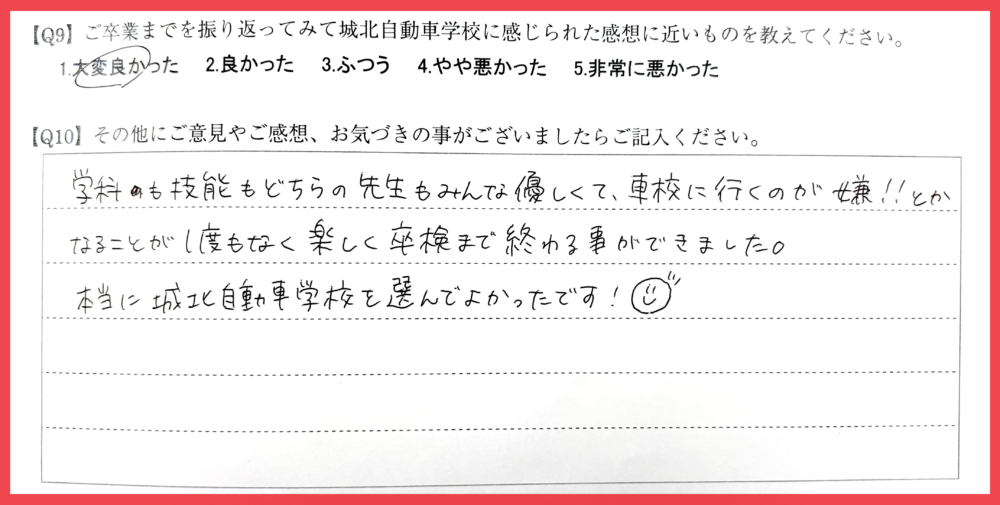 【Q9】ご卒業までを振り返ってみて城北自動車学校に感じられた感想に近いものを教えてください。
1.大変良かった 2.良かった 3.ふつう 4.やや悪かった 5.非常に悪かった
【Q10】その他にご意見やご感想、お気づきの事がございましたらご記入ください。
学科も技能もどちらの先生もみんな優しくて、車校に行くのが嫌!!とか
なることが1度もなく楽しく卒検まで終わる事ができました。
本当に城北自動車学校を選んでよかったです!